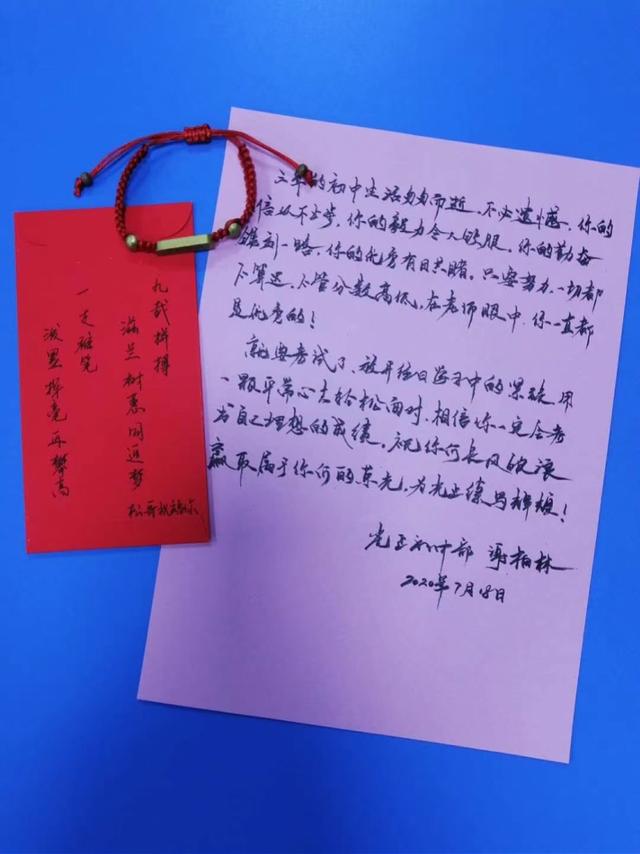 三年的初中生活匆匆而逝,不必遗憾,你的
自信从不止步,你的毅力令人钦服,你的勤奋
铭刻一路,你的优秀有目共睹。只要努力,一切都
不算迟,不管分数高低,在老师眼中,你一直都
是优秀的!
就要考试了,放开往日学习中的累赘,用
一颗平常心去轻松面对,相信你一定会考
出自己理想的成绩,祝你们长风破浪
赢取属于你们的荣光,为光正续写辉煌!
光正初中部 谢柏林
2020年7月18日
九载拼搏
滋兰树蕙同追梦
一支硕笔
泼墨挥毫再攀高
松哥祝福你